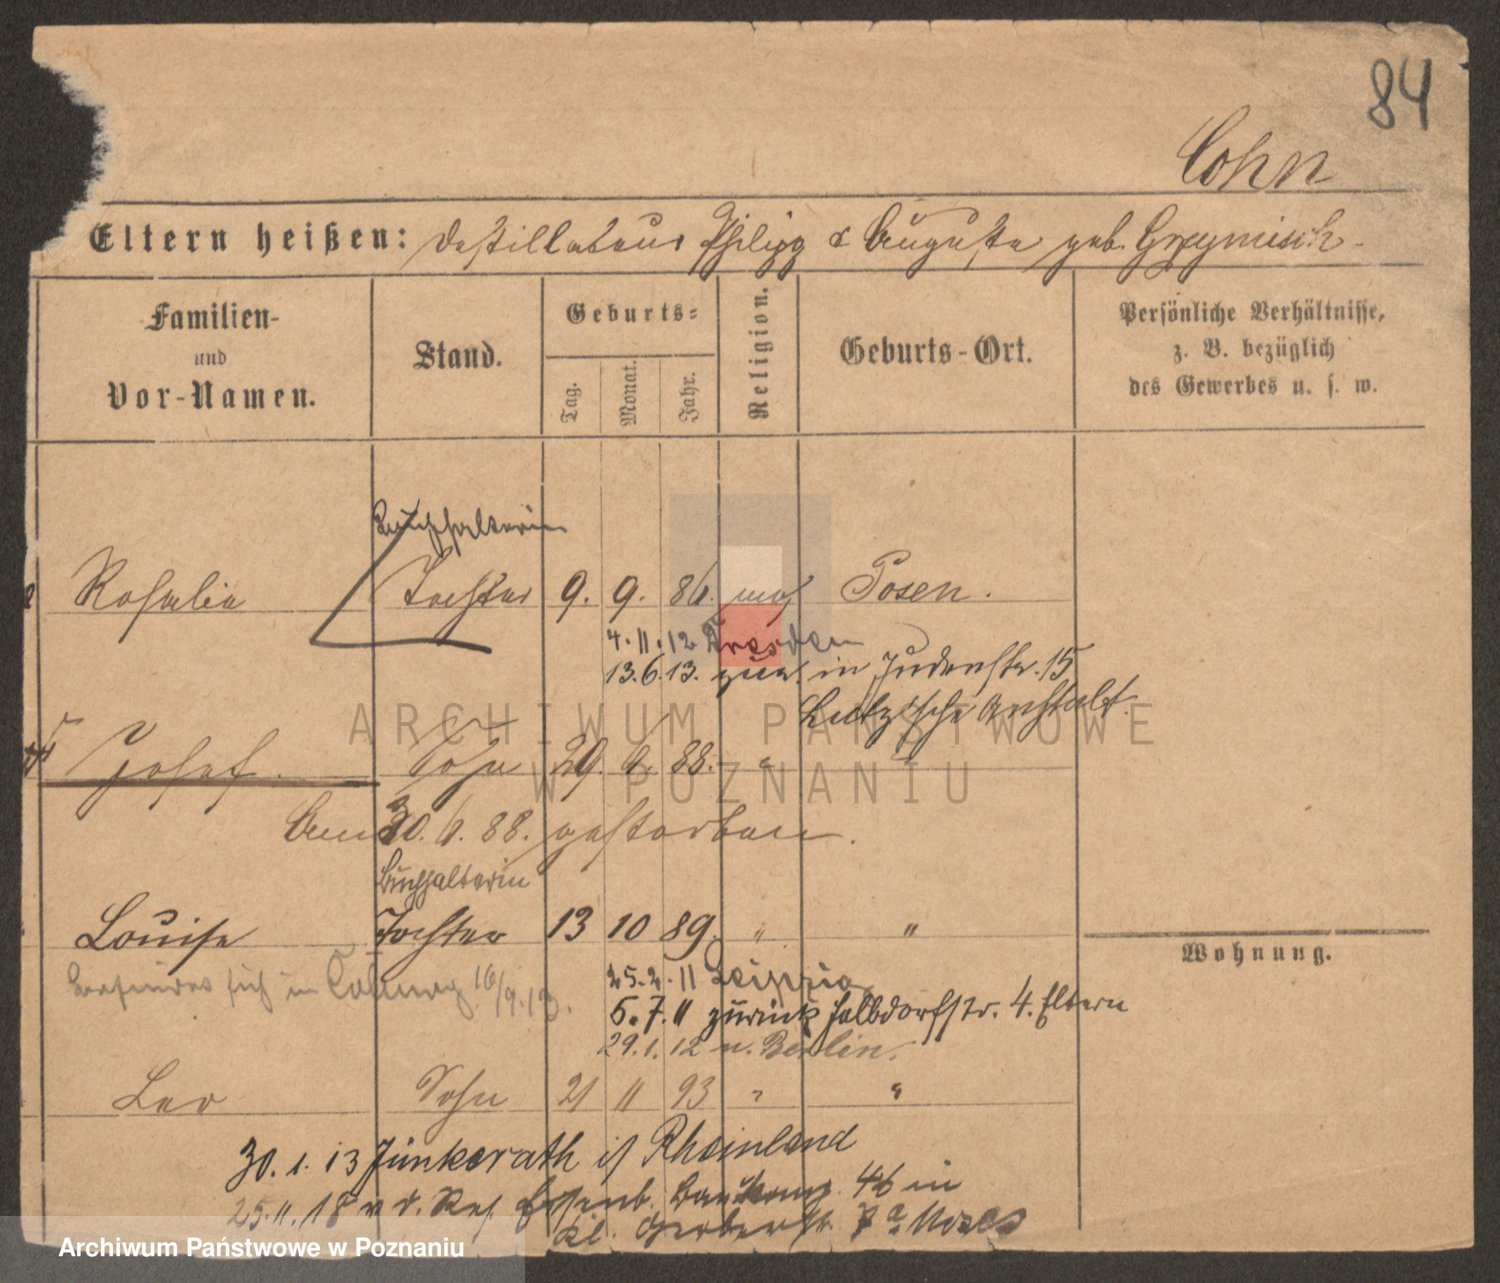 84
Cohn
Eltern heißen: Destillateur Philipp & Auguste geb. Grzymisch
Familien- und Vor-Namen.
Stand.
Geburts=
Tag.
Monat.
Jahr.
Religion.
Geburts-Ort.
Persönliche Verhältnisse, z. B. bezüglich des Gewerbes u. s. w.
Buchhalterin
Rosalie Tochter 9. 9. 86. mos Posen.
4. 11. 12 Dresden
13. 6. 13. zur. in Judenstr. 15
Anstalt
Josef. Sohn 29. 6. 88. "
Am 30. 6. 88. gestorben.
Buchhalterin
Louise Tochter 13 10 89. " "
Wohnung.
befindet sich in 16/9.13.
25. 2. 11 Leipzig
5. 7. 11 zurück Halbdorfstr. 4. Eltern
29. 1. 12 n. Berlin.
Leo Sohn 21 11 93 " "
30. 1. 13 Jünkerath i/ Rheinland
25. 11. 18 v. d. Res. Eisenb. 46 in
Kl. Gerberstr. 7a Moses
ARCHIWUM PAŃSTWOWE
W POZNANIU
Archiwum Państwowe w Poznaniu